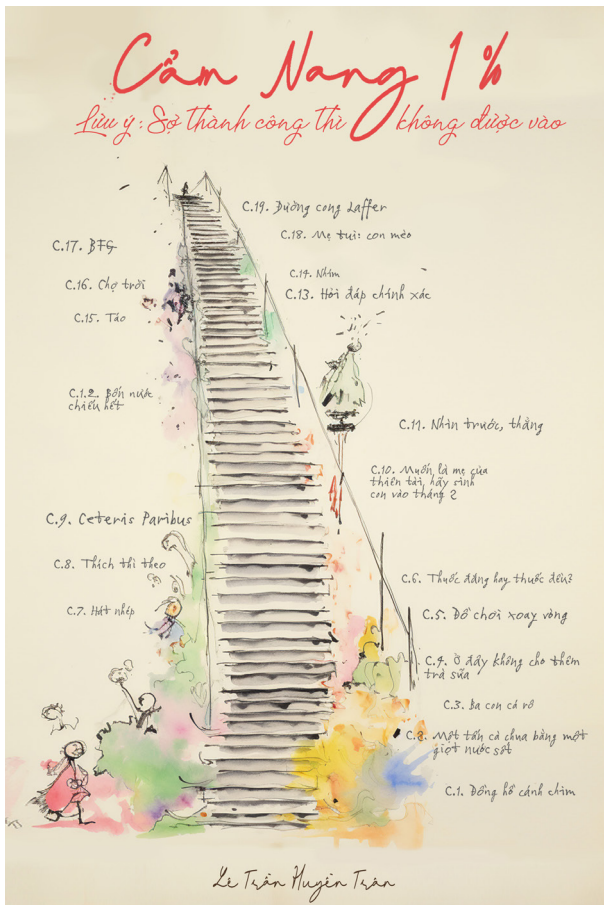 Cẩm Nang 1%
Lưu ý: Sợ thành công thì không được vào
C.19. Đường cong Laffer
C.18. Mẹ tui: con mèo
C.17. BFG
C.14. Nhím
C.16. Chợ trời
C.13. Hỏi đáp chính xác
C.15. Táo
C.12. Bốn nước
chiếu hết
C.11. Nhìn trước, thẳng
C.10. Muốn là mẹ của
thiên tài, hãy sinh
con vào tháng 2
C.9. Ceteris Paribus
C.8. Thích thì theo
C.6. Thuốc đắng hay thuốc đểu?
C.7. Hát nhép
C.5. Đồ chơi xoay vòng
C.4. Ở đây không cho thêm
trà sữa
C.3. Ba con cá rô
C.2. Một tấn cà chua bằng một
giọt nước sốt
C.1. Đồng hồ cánh chim
Lê Trần Huyền Trân